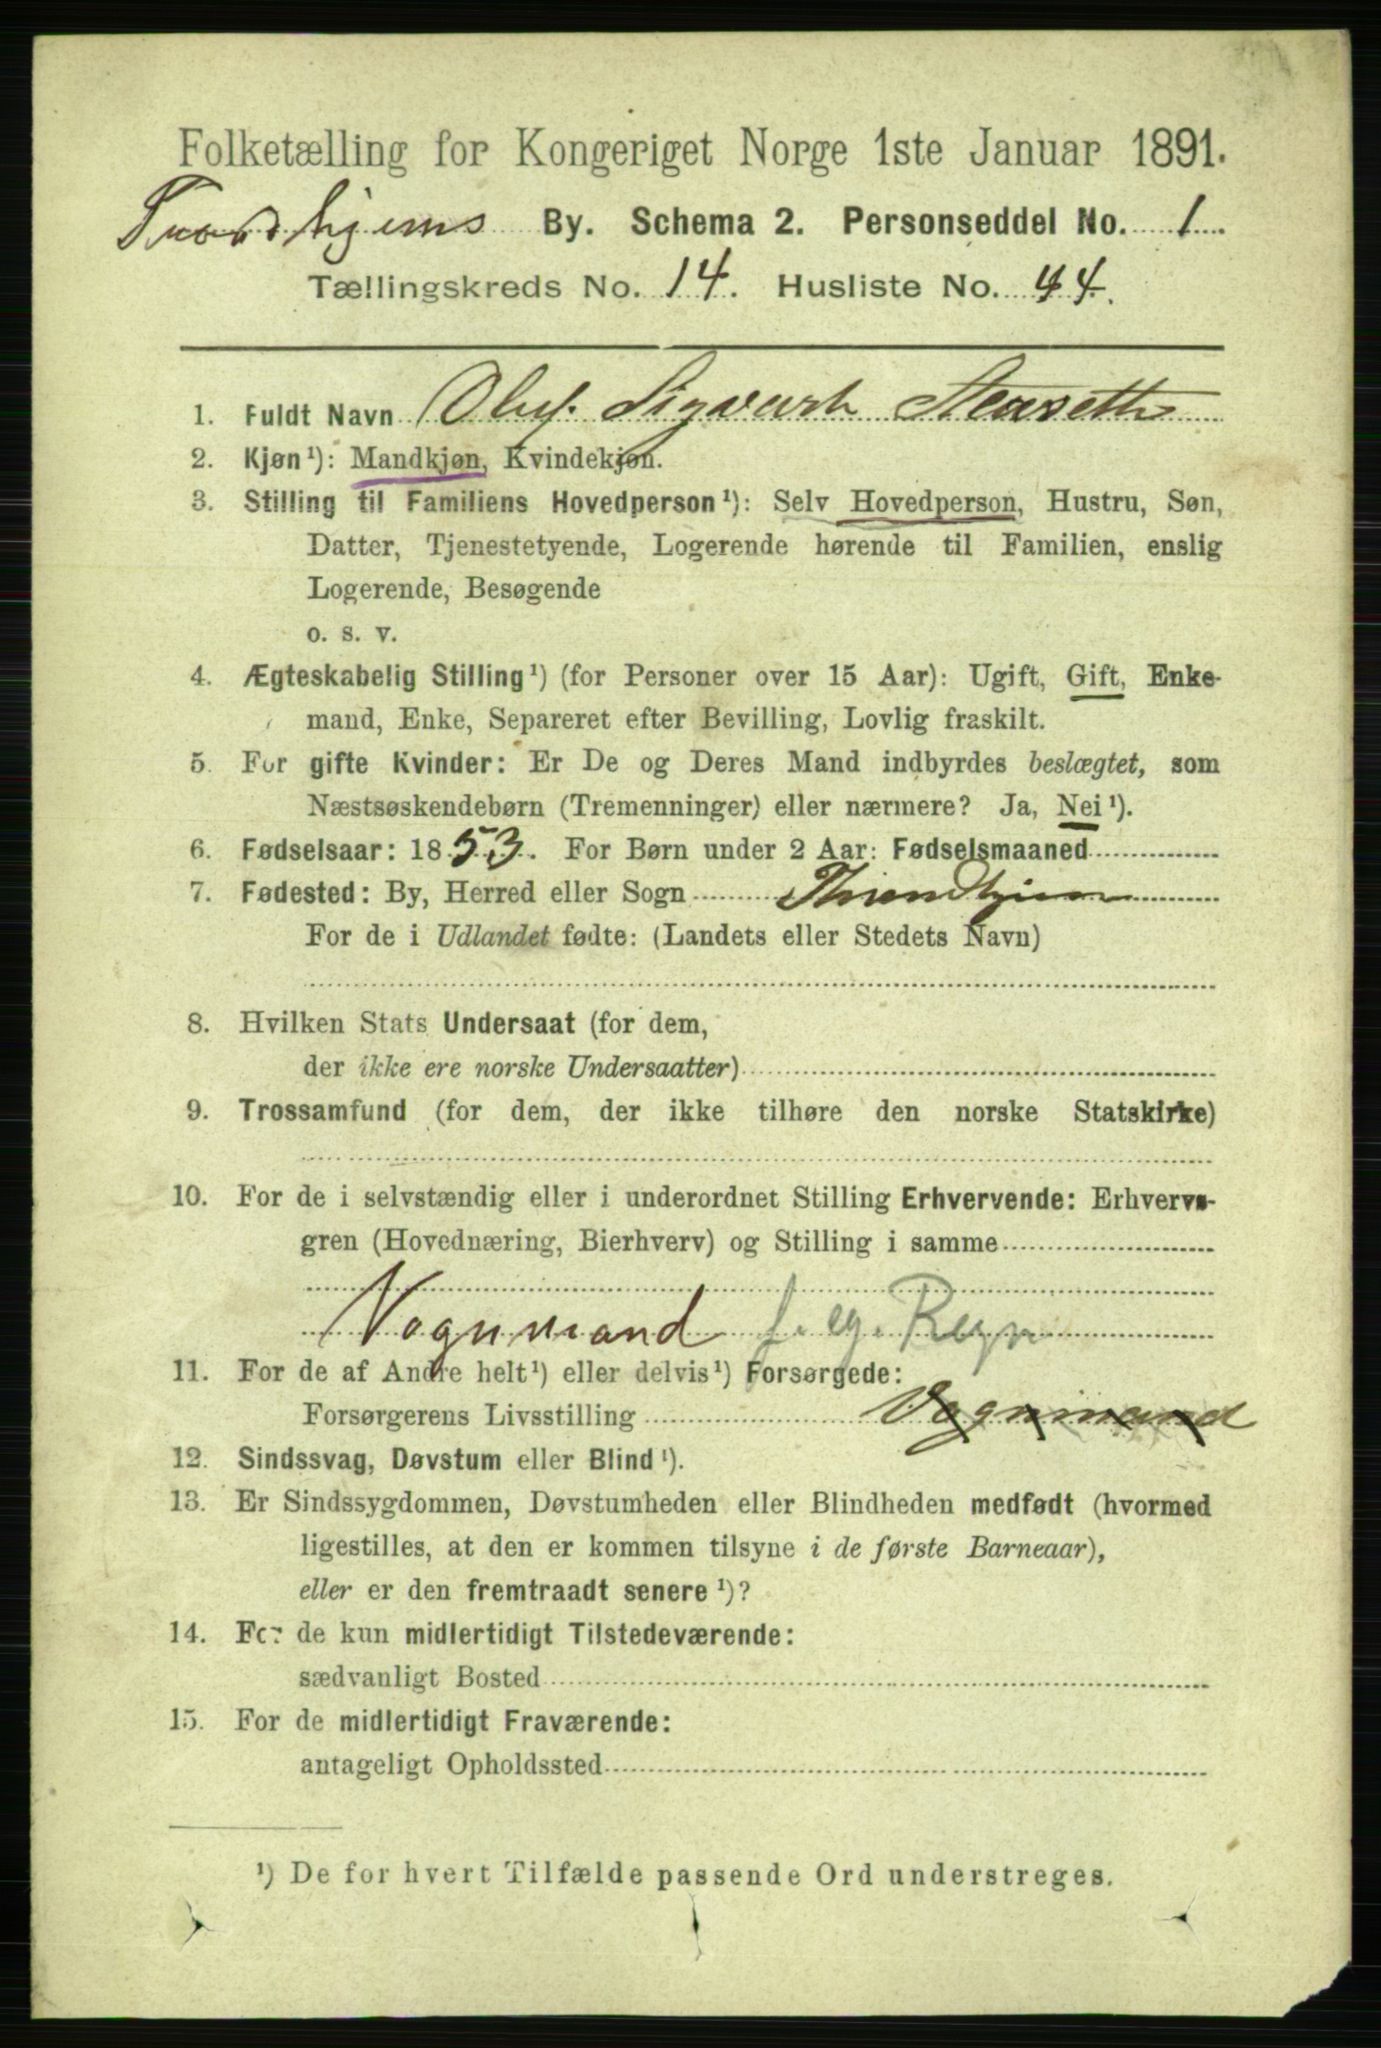 Folketælling for Kongeriget Norge 1ste Januar 1891.
Trondhjems By. Schema 2. Personseddel No. 1.
Tællingskreds No. 14. Husliste No. 44.
1. Fuldt Navn Oluf Sigvart Stenseth
2. Kjøn¹): Mandkjøn, Kvindekjøn.
3. Stilling til Familiens Hovedperson¹): Selv Hovedperson, Hustru, Søn,
Datter, Tjenestetyende, Logerende hørende til Familien, enslig
Logerende, Besøgende
o. s. v.
4. Ægteskabelig Stilling¹) (for Personer over 15 Aar): Ugift, Gift, Enke-
mand, Enke, Separeret efter Bevilling, Lovlig fraskilt.
5. For gifte Kvinder: Er De og Deres Mand indbyrdes beslægtet, som
Næstsøskendebørn (Tremenninger) eller nærmere? Ja, Nei¹).
6. Fødselsaar: 1853. For Børn under 2 Aar: Fødselsmaaned
7. Fødested: By, Herred eller Sogn Throndhjem
For de i Udlandet fødte: (Landets eller Stedets Navn)
8. Hvilken Stats Undersaat (for dem,
der ikke ere norske Undersaatter)
9. Trossamfund (for dem, der ikke tilhøre den norske Statskirke)
10. For de i selvstændig eller i underordnet Stilling Erhvervende: Erhvervs-
gren (Hovednæring, Bierhverv) og Stilling i samme
Vognmand f. eg. Regn
11. For de af Andre helt¹) eller delvis¹) Forsørgede:
Forsørgerens Livsstilling Vognmand
12. Sindssvag, Døvstum eller Blind¹).
13. Er Sindssygdommen, Døvstumheden eller Blindheden medfødt (hvormed
ligestilles, at den er kommen tilsyne i de første Barneaar),
eller er den fremtraadt senere¹)?
14. For de kun midlertidigt Tilstedeværende:
sædvanligt Bosted
15. For de midlertidigt Fraværende:
antageligt Opholdssted
¹) De for hvert Tilfælde passende Ord understreges.